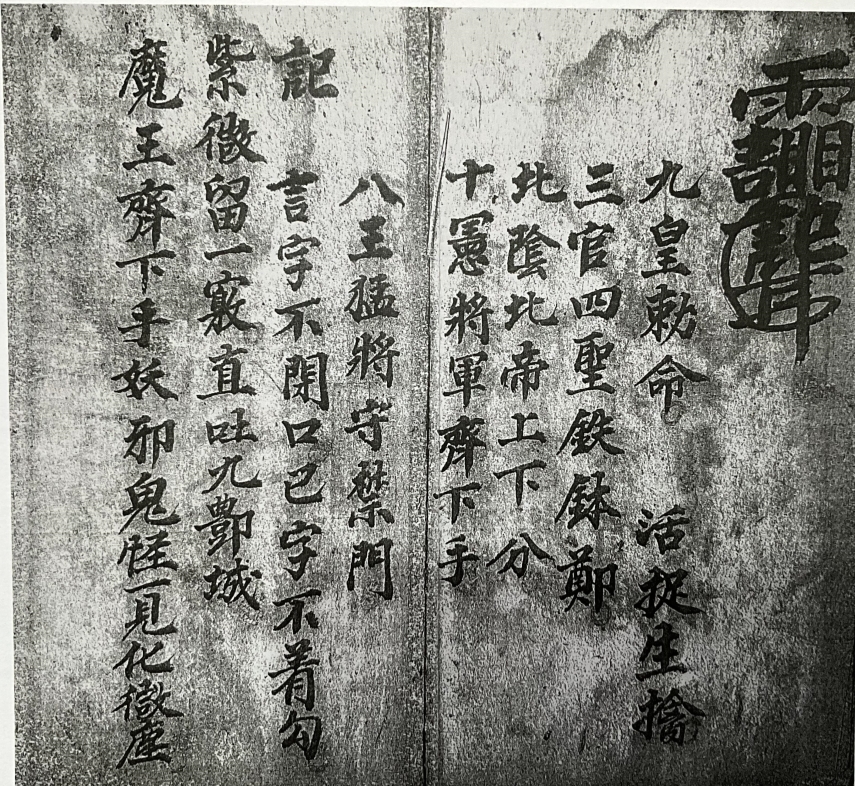 九皇勅命 活捉生擒
三官四聖鉄鉢鄭
北陰北帝上下分
十將軍齊下手
八王猛將守禁門
記 言字不開口巳字不着勾
紫微留一竅直吐九酆城
魔王齊下手妖邪鬼怪一見化微塵